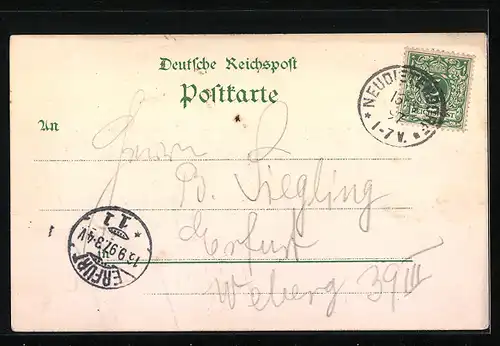 Deutsche Reichspost
Postkarte
NEUDIETENDORF
1-7 V.
An
Herrn
B. Siegling
Erfurt
Weberg 39 III
ERFURT
13.9.97.3-4V
* 1 *